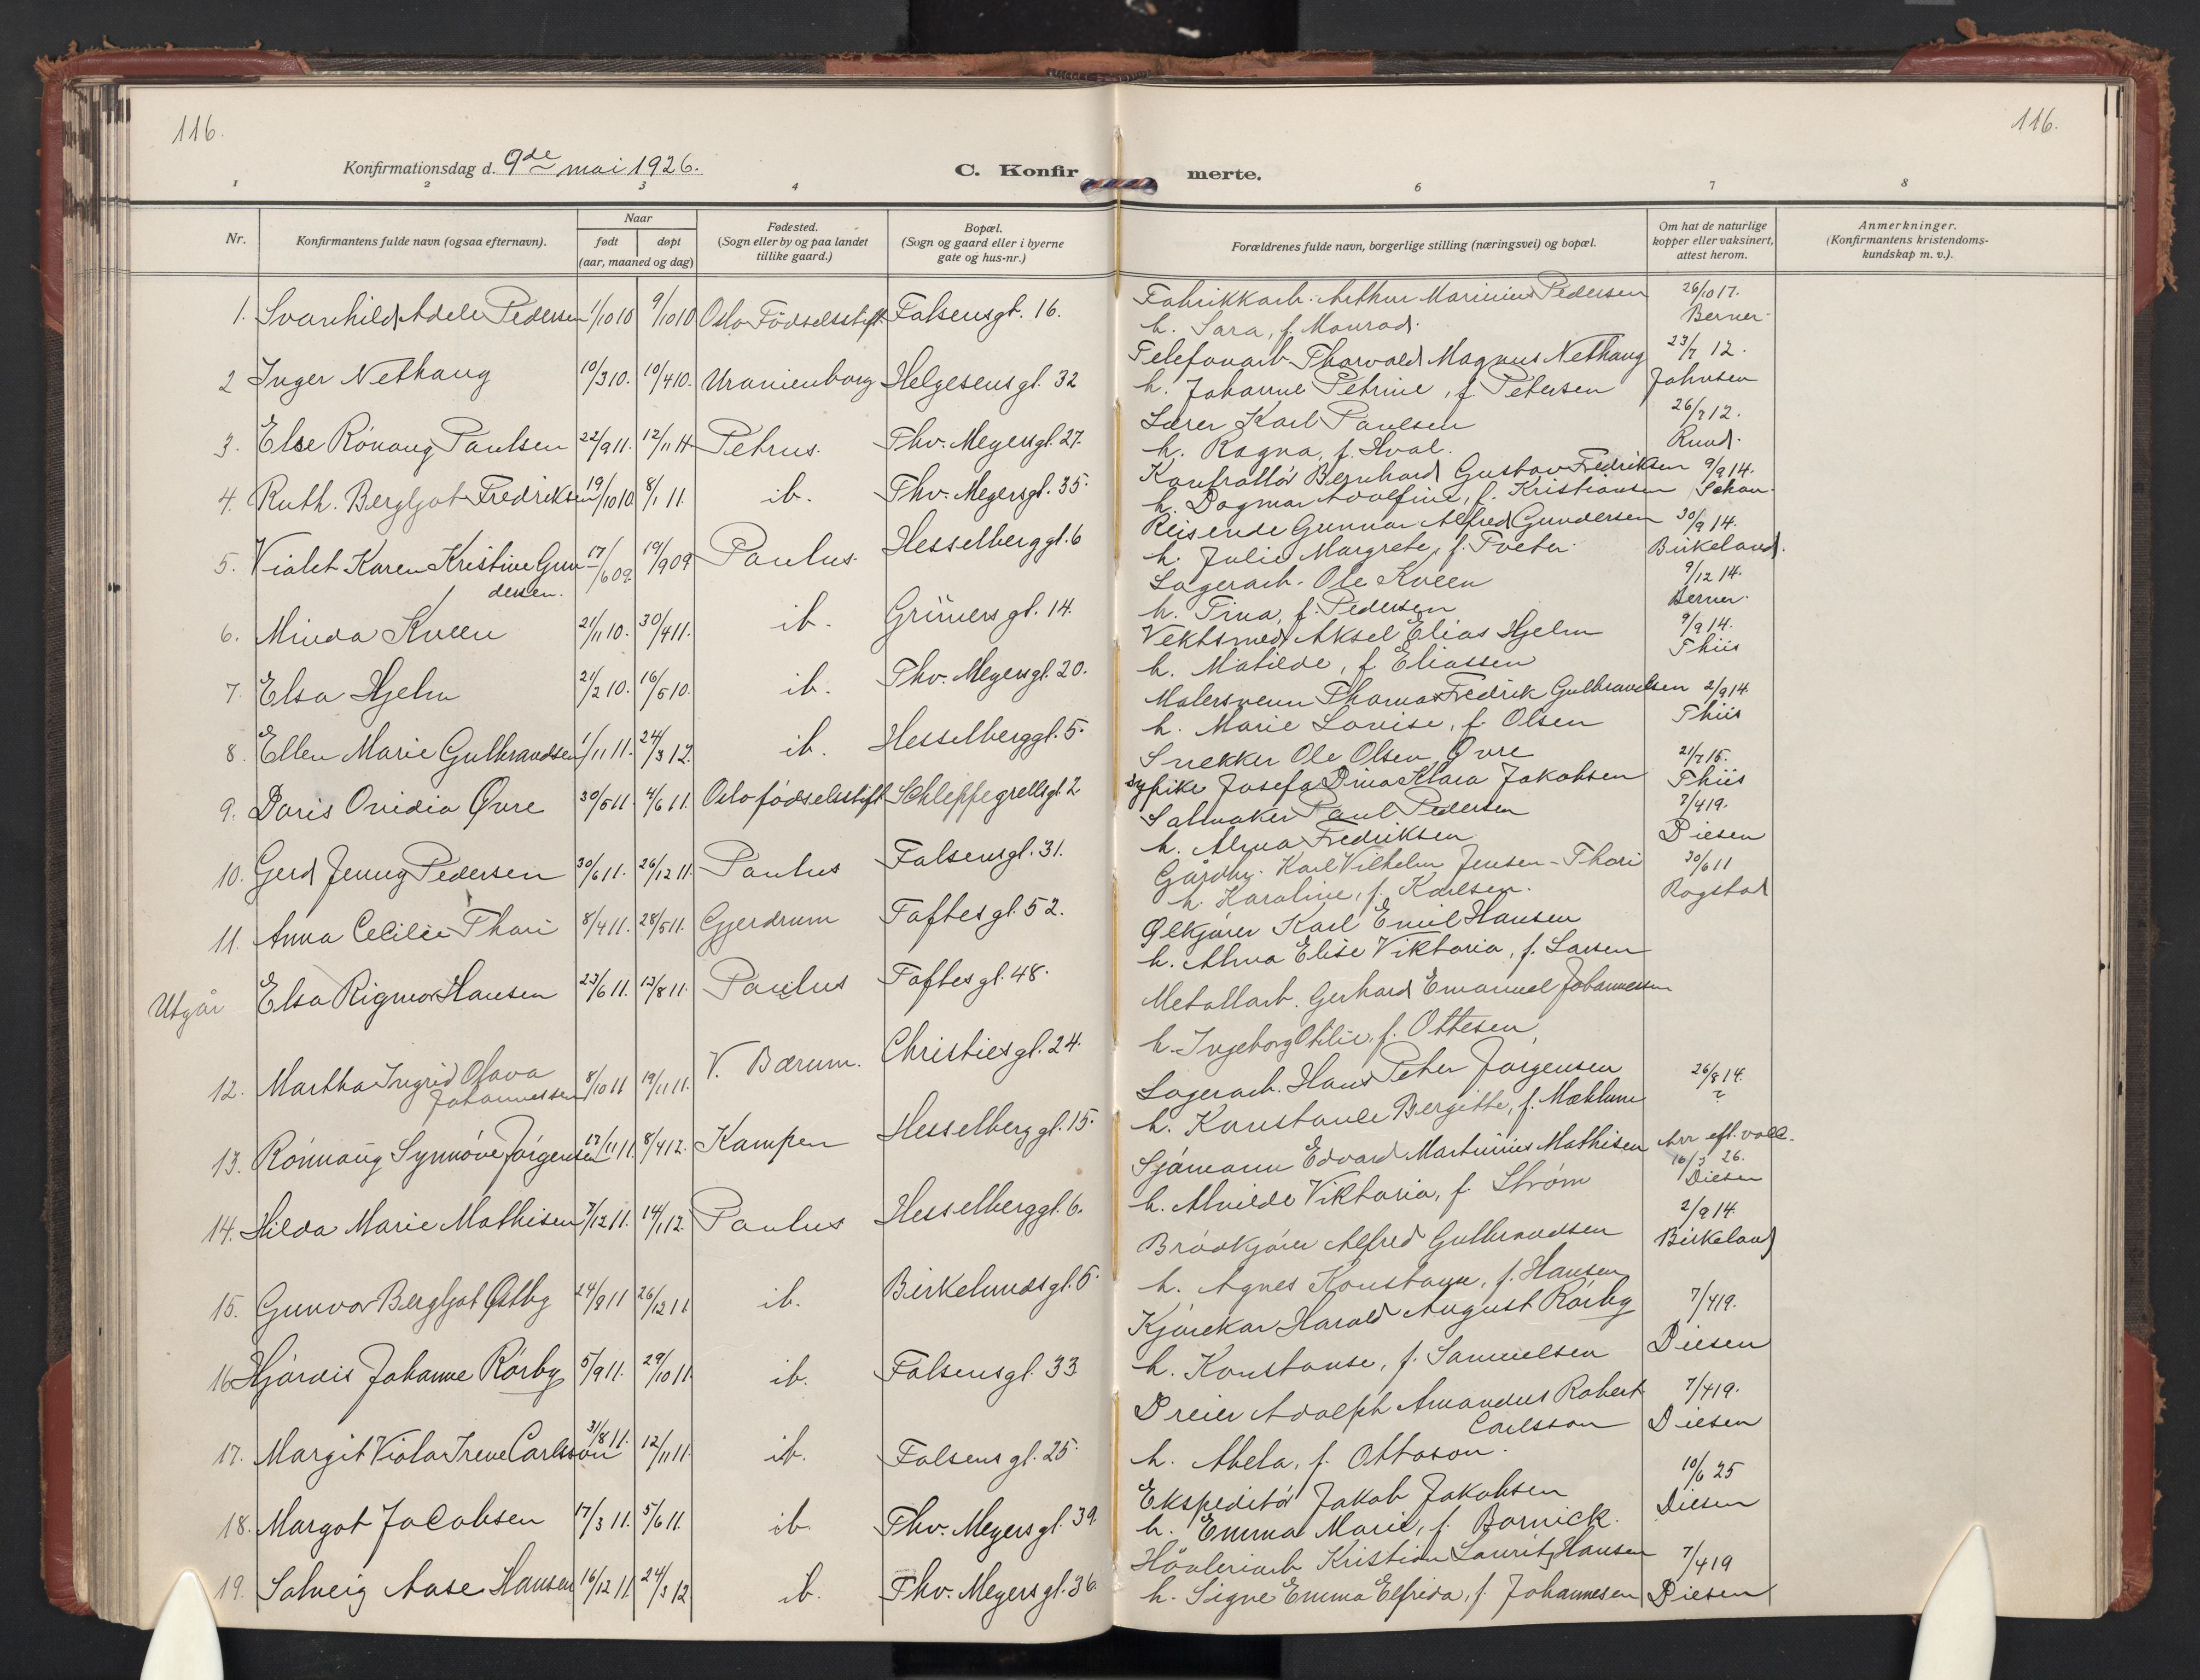 116.
116.
Konfirmationsdag d. 9de mai 1926.
C. Konfirmerte.
1 2 3 4 5 6 7 8
Nr.
Konfirmantens fulde navn (ogsaa efternavn).
Naar
født
døpt
(aar, maaned og dag)
Fødested.
(Sogn eller by og paa landet
tillike gaard.)
Bopæl.
(Sogn og gaard eller i byerne
gate og hus-nr.)
Forældrenes fulde navn, borgerlige stilling (næringsvei) og bopæl.
Om hat de naturlige
kopper eller vaksinert,
attest herom.
Anmerkninger.
(Konfirmantens kristendoms-
kundskap m. v.).
1. Svanhild Adele Pedersen 1/10 10 9/10 10 Oslo Fødselsstift. Falsensgt. 16.
Fabrikkarb. Arthur Marinius Pedersen 26/10 17.
h. Sara, f. Monrad. Berner.
2 Inger Nethaug 10/3 10. 10/4 10. Uranienborg Helgesensgt. 32
Telefonarb. Thorvald Magnus Nethaug 23/7 12.
h. Johanne Petrine, f. Petersen Johnsen
3. Else Rónaug Paulsen 22/9 11. 12/11 11 Petrus. Thv. Meyersgt. 27.
Lærer Karl Paulsen 26/7 12.
h. Ragna, f. Hval. Ruud.
4. Ruth. Bergljot Fredriksen 19/10 10 8/1 11. ib. Thv. Meyersgt. 35.
Kontrollór Bernhard Gustav Fredriksen 9/9 14.
h. Dagmar Adolfine, f. Kristiansen Schou.
5. Violet Karen Kristine Gun
dersen. 17/6 09. 19/9 09 Paulus. Hesselberggt. 6
Reisende Gunnar Alfred Gundersen 30/9 14.
h. Julie Margrete, f. Tveter. Birkeland.
6. Minda Kveen 21/11 10. 30/4 11. ib. Grüners gt. 14.
Lagerarb. Ole Kveen 9/12 14.
h. Tina, f. Pedersen Berner.
7. Elsa Hjelm 21/2 10. 16/5 10. ib. Thv. Meyersgt. 20.
Vektsmed Aksel Elias Hjelm 9/9 14.
h. Matilde, f. Eliassen Thiis
8. Ellen Marie Gulbrandsen 1/11 11. 24/3 12. ib. Hesselberggt. 5.
Malersvenn Thomas Fredrik Gulbrandsen 2/9 14.
h. Marie Lovise, f. Olsen Thiis
9. Doris Ovidia Øvre 30/5 11. 4/6 11. Oslo fødselsstift Schleppegrellsgt 2
Snekker Ole Olsen Øvre 21/7 15.
sypike Josefa Dina Klara Jakobsen Thiis
10. Gerd Jenny Pedersen 30/6 11. 26/12 11. Paulus Falsensgt. 31.
Salmaker Paul Pedersen 7/4 19.
h. Alma Fredriksen Diesen
11. Anna Cecilie Thori 8/4 11. 28/5 11. Gjerdrum Toftesgt. 52.
Gårdbr. Karl Vilhelm Jensen-Thori 30/6 11
h. Karoline, f. Karlsen. Rogstad
Utgår Elsa Rigmor Hansen 23/6 11. 13/8 11. Paulus Toftes gt. 48.
Ølkjører Karl Emil Hansen
h. Alma Elise Viktoria, f. Larsen
12. Martha Ingrid Olava
Johannessen 8/10 11 19/11 11. V. Bærum. Christiesgt. 24.
Metallarb. Gerhard Emanuel Johannessen
h. Ingeborg Otilie, f. Ottesen
13. Rónnaug Synnóve Jórgensen 17/11 11. 8/4 12. Kampen Hesselberg gt. 15.
Lagerarb. Hans Peter Jórgensen 26/8 14.
h. Konstanse Bergitte, f. Mæhlum ?
14. Hilda Marie Mathisen 7/12 11. 14/1 12. Paulus Hesselberggt. 6.
Sjómann Edvard Martinius Mathisen Arr eft. vacc.
16/3 26.
h. Alvilde Viktoria, f. Strøm Diesen
15. Gunvor Bergljot Østby 24/9 11 26/12 11 ib. Birkelundsgt. 5.
Bródkjórer Alfred Gulbrandsen 2/9 14.
h. Agnes Konstanse, f. Hansen Birkeland
16 Hjórdis Johanne Rórby 5/9 11. 29/10 11. ib. Falsensgt. 33
Kjórekar Harald August Rórby 7/4 19.
h. Konstanse, f. Samuelsen Diesen
17. Margit Viola Irene Carlsson 31/8 11. 12/11 11. ib. Falsens gt. 25.
Dreier Adolph Amandus Robert 7/4 19.
Carlsson Diesen
h. Abela, f. Ottoson.
18. Margot Jacobsen 17/3 11. 5/6 11. ib. Thv. Meyersgt. 39.
Ekspeditór Jakob Jakobsen 10/6 25
h. Emma Marie, f. Bornick. Diesen
19. Solveig Aase Hansen 16/12 11. 24/3 12. ib. Thv. Meyers gt. 36.
Hóvleriarb Kristian Lauritz Hansen 7/4 19
h. Signe Emma Elfrida, f. Johannesen Diesen